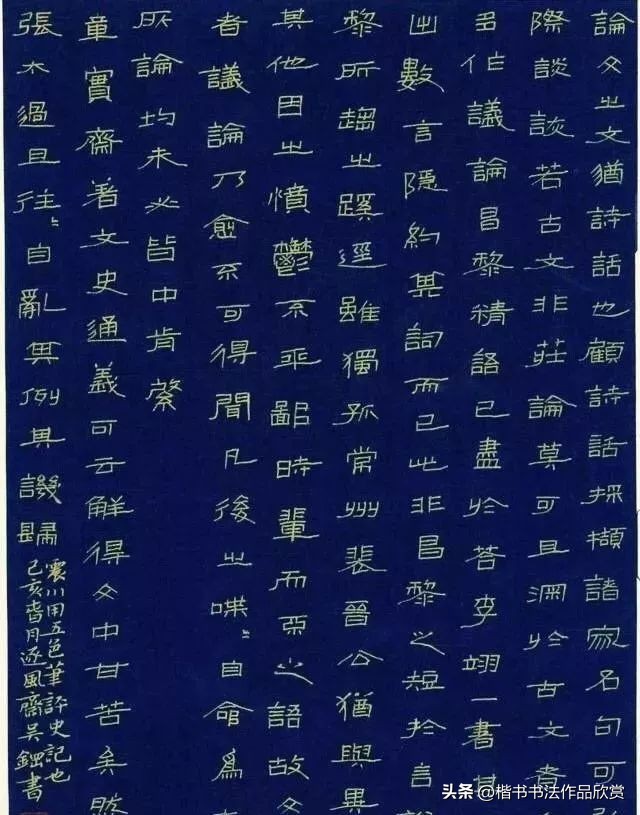 論文之文猶詩話也顧詩話採擷諸家名句可
際談談若古文非莊論莫可且溯於古文者
多作議論昌黎精語已盡於答李翊一書其
出數言隱約其詞而已此非昌黎之短於言
黎所趨之蹊逕雖獨孤常州裴晉公猶與異
其他因之憤鬱不平鄙時輩而惡之語故文
者議論乃愈不可得聞凡後之喋〻自命為
所論均未必皆中肯綮
章實齋著文史通義可云解得文中甘苦矣然
張太過且往〻自亂其例其譏歸
震川用五色筆評史記也
己亥杏月逐風齋吳鉀書
头条 @楷书书法作品欣赏